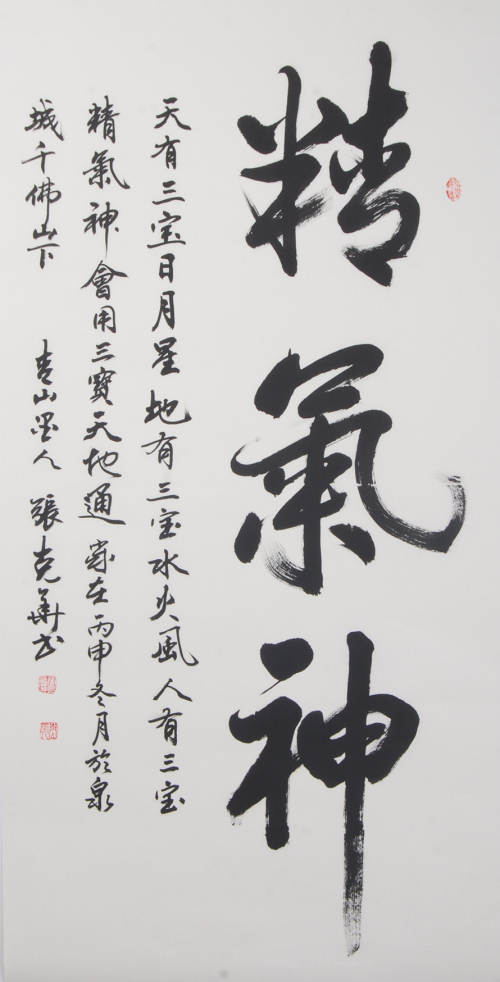 精氣神
天有三宝日月星地有三宝水火風人有三宝
精氣神會用三寶天地通歲在丙申冬月於泉
城千佛山下 青山墨人 張克華书